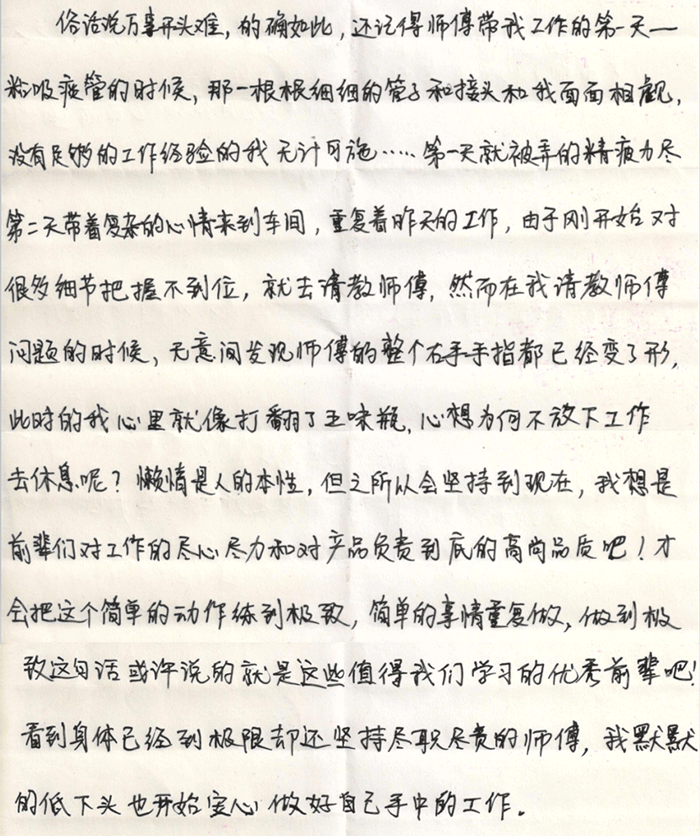 俗话说万事开头难，的确如此，还记得师傅带我工作的第一天一
粘吸痰管的时候，那一根根细细的管子和接头和我面面相觑，
没有足够的工作经验的我无计可施……第一天就被弄的精疲力尽
第二天带着复杂的心情来到车间，重复着昨天的工作，由于刚开始对
很多细节把握不到位，就去请教师傅，然而在我请教师傅
问题的时候，无意间发现师傅的整个右手手指都已经变了形，
此时的我心里就像打翻了五味瓶，心想为何不放下工作
去休息呢？懒惰是人的本性，但之所以会坚持到现在，我想是
前辈们对工作的尽心尽力和对产品负责到底的高尚品质吧！才
会把这个简单的动作练到极致，简单的事情重复做，做到极
致这句话或许说的就是这些值得我们学习的优秀前辈吧！
看到身体已经到极限却还坚持尽职尽责的师傅，我默默
的低下头也开始安心做好自己手中的工作。